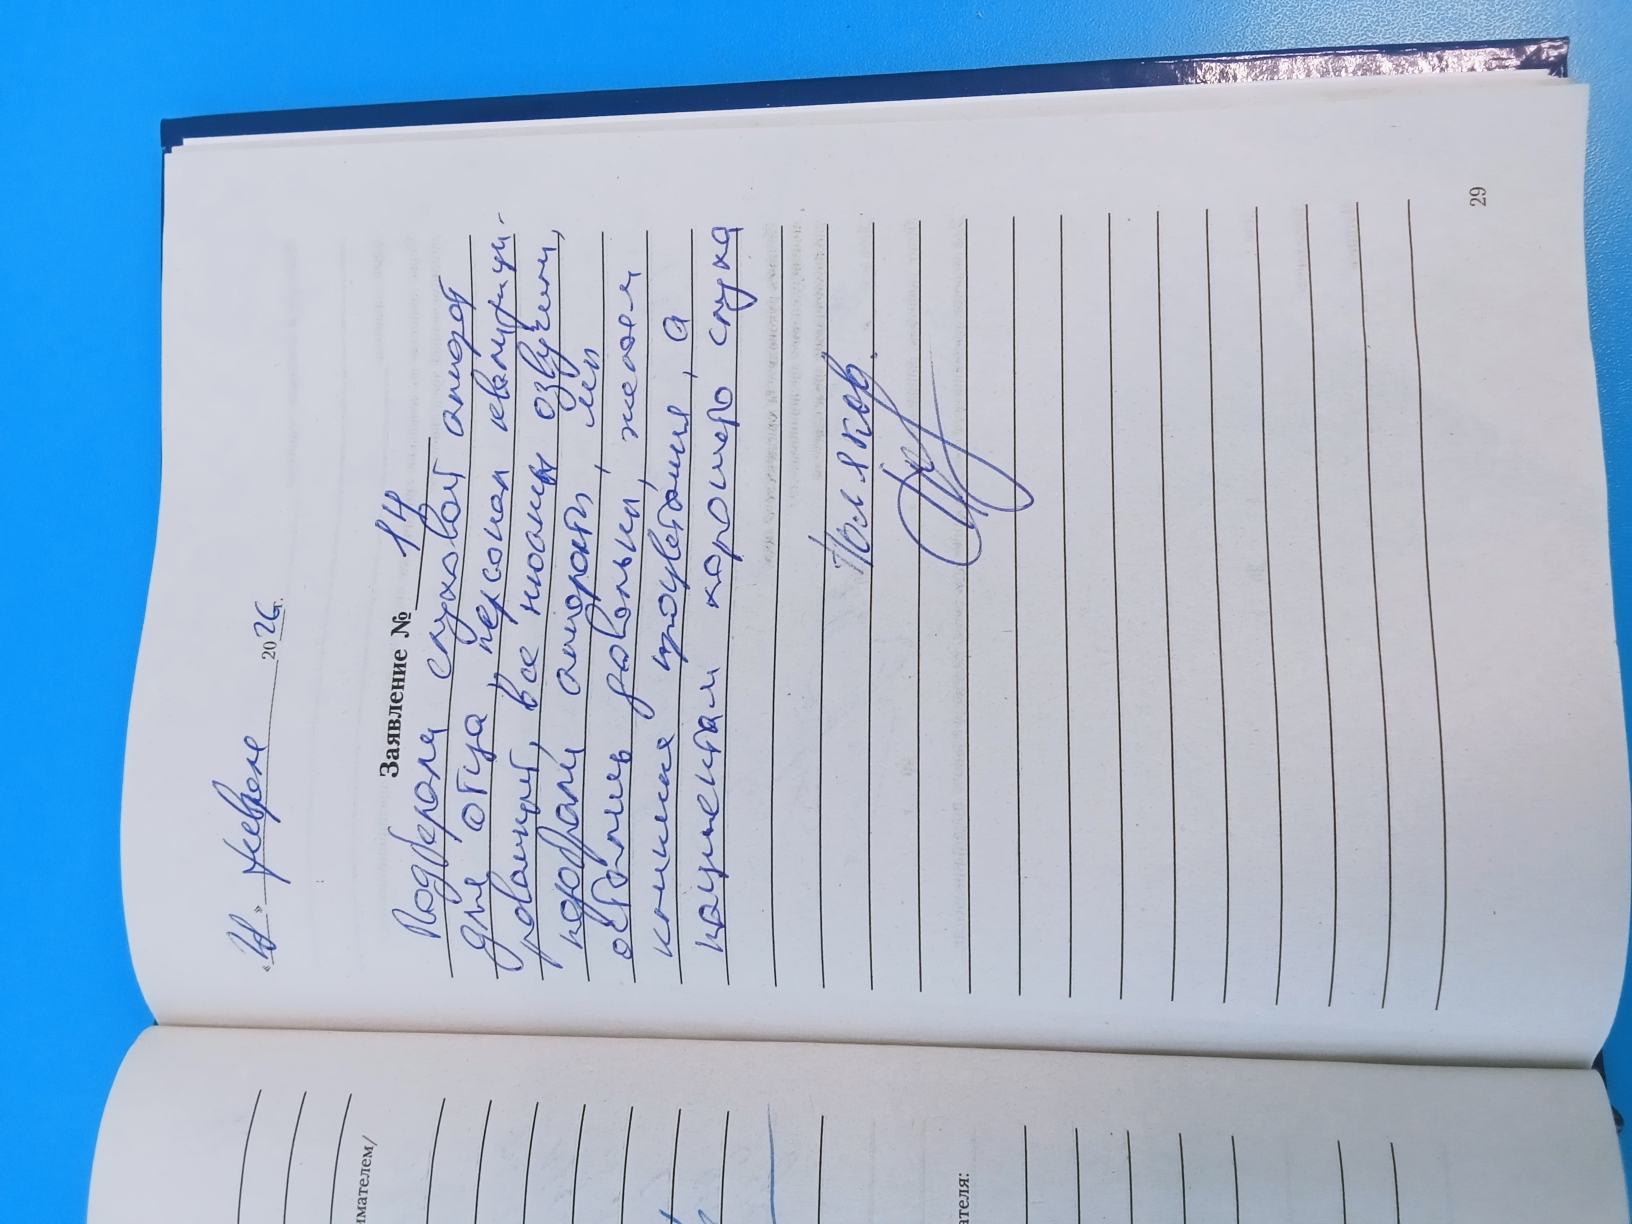 « » февраля 2026г.
Заявление № 14
Подбирали слуховой аппарат
для отца, персонал квалифици-
рованный, все нюансы озвучили,
подобрали аппараты, мы
остались довольны, желаем
клинике процветания, а
пациентам хорошего слуха
Поляков.
29
имателем/
ателя: